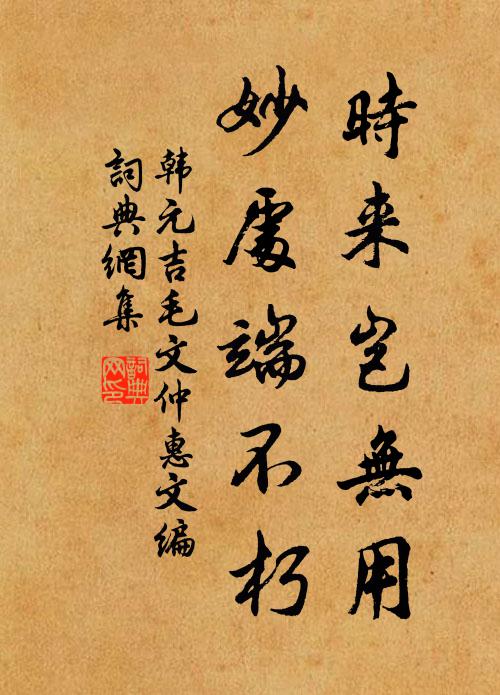 時来豈無用
妙處端不朽
韩元吉毛文仲惠文编
詞典網集
詞典网印